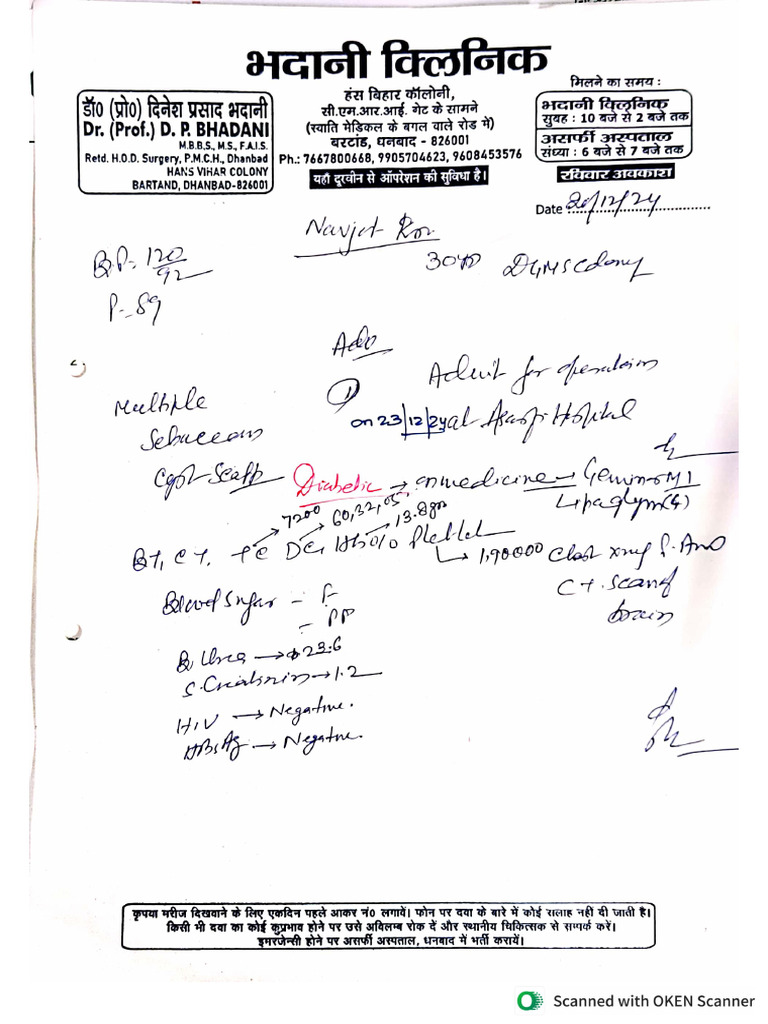 भदानी क्लिनिक
डॉ० (प्रो०) दिनेश प्रसाद भदानी
Dr. (Prof.) D. P. BHADANI
M.B.B.S., M.S., F.A.I.S.
Retd. H.O.D. Surgery, P.M.C.H., Dhanbad
HANS VIHAR COLONY
BARTAND, DHANBAD-826001
हंस बिहार कॉलोनी,
सी.एम.आर.आई. गेट के सामने
(स्वाति मेडिकल के बगल वाले रोड में)
बरटांड, धनबाद - 826001
Ph.: 7667800668, 9905704623, 9608453576
यहाँ दूरवीन से ऑपरेशन की सुविधा है।
मिलने का समय :
भदानी क्लिनिक
सुबह : 10 बजे से 2 बजे तक
असर्फी अस्पताल
संध्या : 6 बजे से 7 बजे तक
रविवार अवकाश
Date 20/12/24
Navjot
B.P- 120/92
P- 89
Colony
Adv
Multiple
Sebaceous
Cyst Scalp
① Admit for operation
on 23/12/24 at Asarfi Hospital
Diabetic → on medicine → Gemino-M1
Lipaglyn(4)
7200 60,32,05 13.8gm
BT, CT, TC DC, Hb% Platelet
→ 1,90000
Chest xray P.A
CT. Scan of
brain
Blood Sugar - F
- PP
B. Urea → 23.6
S. Creatinin → 1.2
HIV → Negative.
HBsAg → Negative.
कृपया मरीज दिखवाने के लिए एकदिन पहले आकर नं० लगावें। फोन पर दवा के बारे में कोई सलाह नहीं दी जाती है।
किसी भी दवा का कोई कुप्रभाव होने पर उसे अविलम्ब रोक दें और स्थानीय चिकित्सक से सम्पर्क करें।
इमरजेन्सी होने पर असर्फी अस्पताल, धनबाद में भर्ती करायें।
Scanned with OKEN Scanner